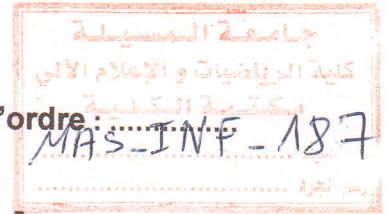 جامعة المسيلة
كلية الرياضيات و الإعلام الآلي
مكتبة الكلية
'ordre : ..............
MAS-INF-187
رقم الجرد ..............